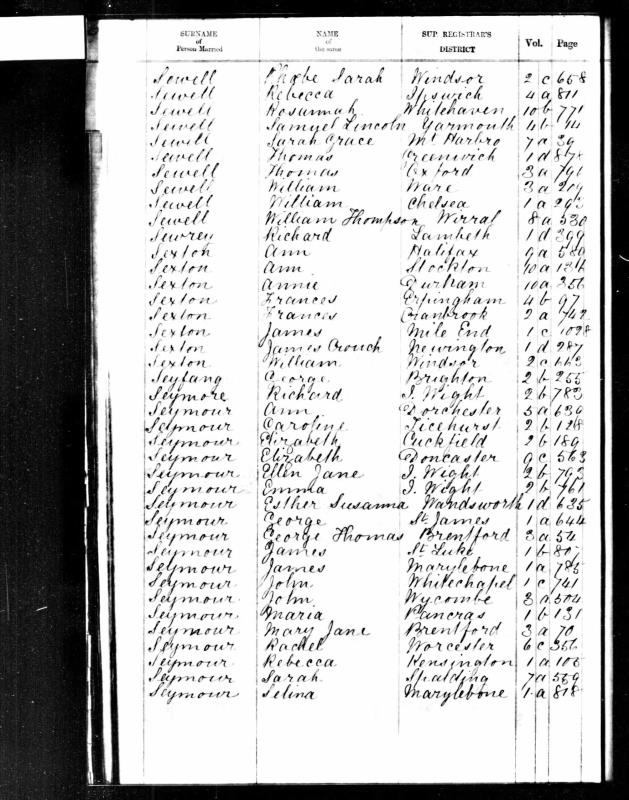 SURNAME of Person Married NAME of the same SUP. REGISTRAR'S DISTRICT Vol. Page
Sewell Phœbe Sarah Windsor 2 c 658
Sewell Rebecca Ipswich 4 a 811
Sewell Rosannah Whitehaven 10 b 771
Sewell Samuel Lincoln Yarmouth 4 b 14
Sewell Sarah Grace Mt Harbro 7 a 39
Sewell Thomas Greenwich 1 d 878
Sewell Thomas Oxford 3 a 791
Sewell William Ware 3 a 219
Sewell William Chelsea 1 a 292
Sewell William Thompson Wirral 8 a 530
Sewrey Richard Lambeth 1 d 399
Sexton Ann Halifax 9 a 580
Sexton Ann Stockton 10 a 136
Sexton Annie Durham 10 a 356
Sexton Frances Erpingham 4 b 97
Sexton Frances Cranbrook 2 a 742
Sexton James Mile End 1 c 1028
Sexton James Crouch Newington 1 d 287
Sexton William Windsor 2 c
Seyfang George Brighton 2 b 255
Seymore Richard I. Wight 2 b 783
Seymour Ann Dorchester 5 a 639
Seymour Caroline Ticehurst 2 b 128
Seymour Elizabeth Cuckfield 2 b 189
Seymour Elizabeth Doncaster 9 c 563
Seymour Ellen Jane I. Wight 2 b 792
Seymour Emma I. Wight 2 b 761
Seymour Esther Susanna Wandsworth 1 d 635
Seymour George St James 1 a 644
Seymour George Thomas Brentford 3 a 54
Seymour James St Luke 1 b 807
Seymour James Marylebone 1 a 785
Seymour John Whitechapel 1 c 741
Seymour John Wycombe 3 a 504
Seymour Maria Pancras 1 b 131
Seymour Mary Jane Brentford 3 a 70
Seymour Rachel Worcester 6 c 356
Seymour Rebecca Kensington 1 a 105
Seymour Sarah Spalding 7 a 559
Seymour Selina Marylebone 1 a 818